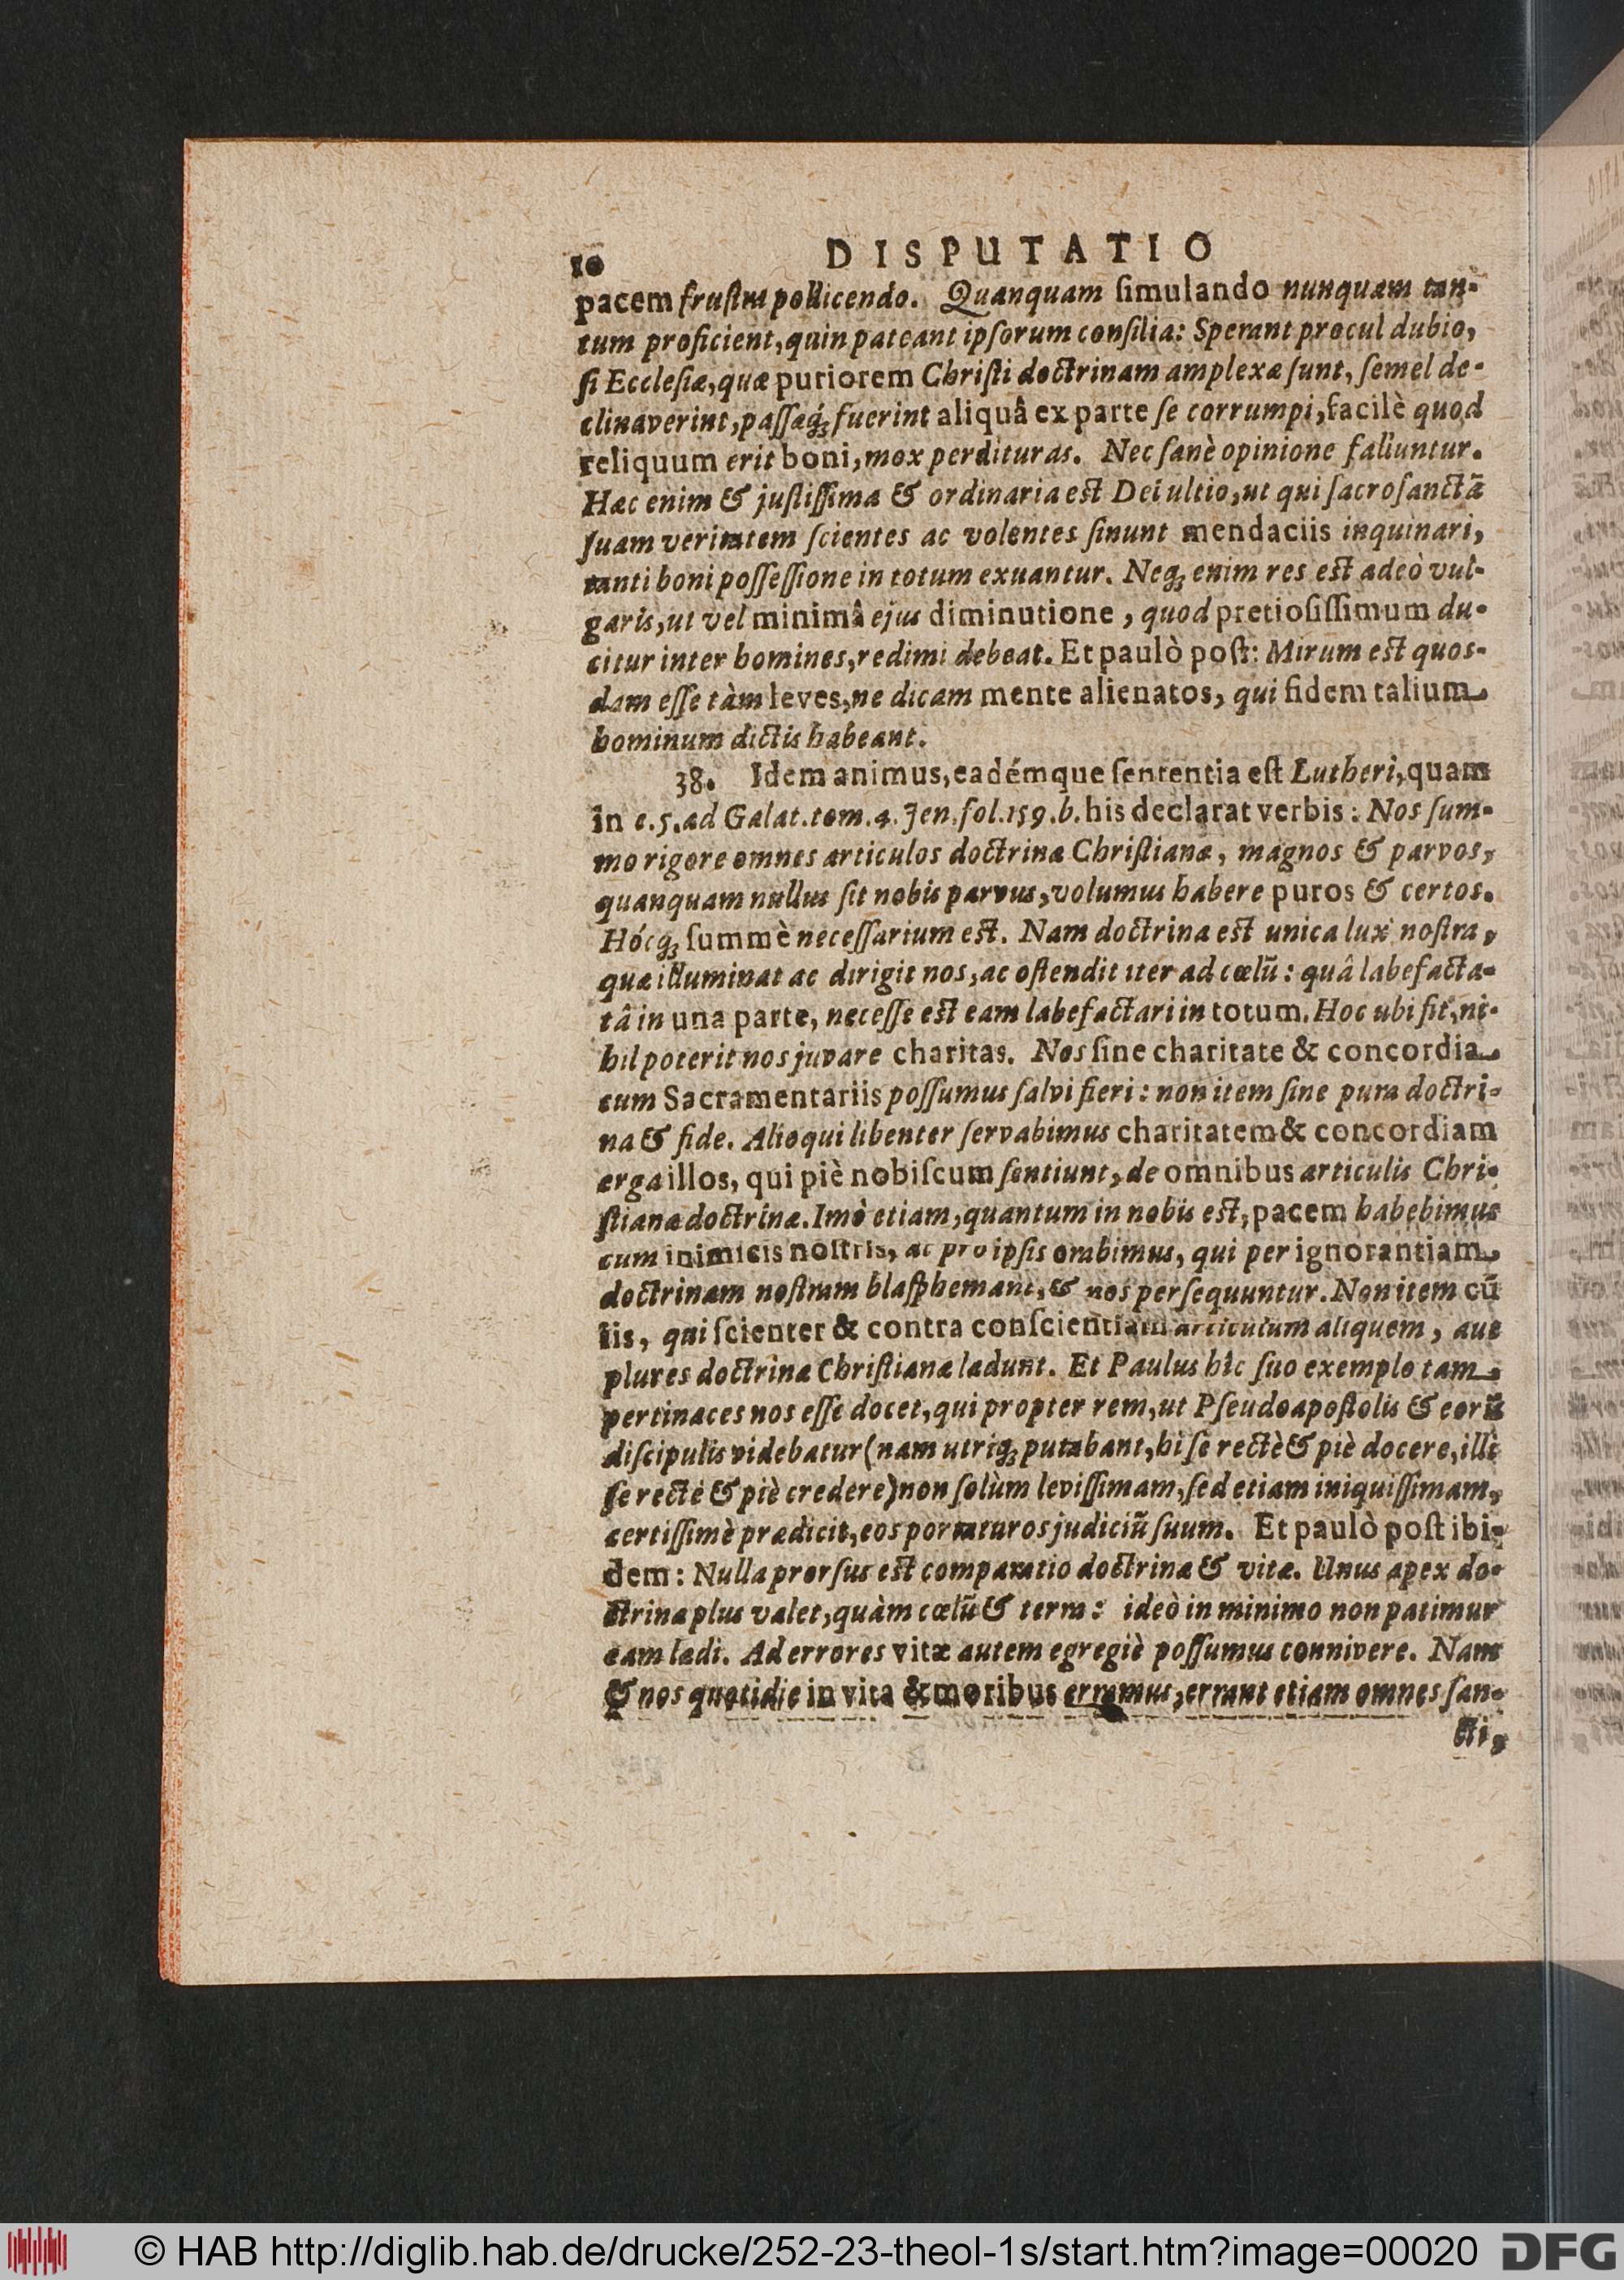 10 DISPUTATIO
pacem fruſtra pollicendo. Quanquam ſimulando nunquam tan-
tum proficient, quin pateant ipſorum conſilia: Sperant procul dubio,
ſi Eccleſiæ, quæ puriorem Chriſti doctrinam amplexæ ſunt, ſemel de-
clinaverint, paſſæq́; fuerint aliquâ ex parte ſe corrumpi, facilè quod
reliquum erit boni, mox perdituras. Nec ſanè opinione falluntur.
Hæc enim & juſtiſſima & ordinaria eſt Dei ultio, ut qui ſacroſanctā
ſuam veritatem ſcientes ac volentes ſinunt mendaciis inquinari,
tanti boni poſſeſſione in totum exuantur. Neq; enim res eſt adeò vul-
garis, ut vel minimâ ejus diminutione, quod pretioſiſſimum du-
citur inter homines, redimi debeat. Et paulò poſt: Mirum eſt quos-
dam eſſe tàm leves, ne dicam mente alienatos, qui fidem talium
hominum dictis habeant.
38. Idem animus, eadémque ſententia eſt Lutheri, quam
in c. 5. ad Galat. tom. 4. Jen. fol. 159. b. his declarat verbis: Nos ſum-
mo rigore omnes articulos doctrinæ Chriſtianæ, magnos & parvos,
quanquam nullus ſit nobis parvus, volumus habere puros & certos.
Hócq; ſummè neceſſarium eſt. Nam doctrina eſt unica lux noſtra,
quæ illuminat ac dirigit nos, ac oſtendit iter ad cœlū: quâ labefacta-
tâ in una parte, neceſſe eſt eam labefactari in totum. Hoc ubi fit, ni-
hil poterit nos juvare charitas. Nos ſine charitate & concordia
cum Sacramentariis poſſumus ſalvi fieri: non item ſine pura doctri-
na & fide. Alioqui libenter ſervabimus charitatem & concordiam
erga illos, qui piè nobiſcum ſentiunt, de omnibus articulis Chri-
ſtianæ doctrinæ. Imò etiam, quantum in nobis eſt, pacem habebimus
cum inimicis noſtris, ac pro ipſis orabimus, qui per ignorantiam
doctrinam noſtram blaſphemant, & nos perſequuntur. Non item cū
iis, qui ſcienter & contra conſcientiam articulum aliquem, aut
plures doctrinæ Chriſtianæ lædunt. Et Paulus hîc ſuo exemplo tam
pertinaces nos eſſe docet, qui propter rem, ut Pſeudoapoſtolis & eorū
diſcipulis videbatur (nam utriq; putabant, hi ſe rectè & piè docere, illi
ſe rectè & piè credere) non ſolùm leviſſimam, ſed etiam iniquiſſimam,
certiſſimè prædicit, eos portaturos judiciū ſuum. Et paulò poſt ibi-
dem: Nulla prorſus eſt comparatio doctrinæ & vitæ. Unus apex do-
ctrinæ plus valet, quàm cœlū & terra: ideò in minimo non patimur
eam lædi. Ad errores vitæ autem egregiè poſſumus connivere. Nam
& nos quotidie in vita & moribus erramus, errant etiam omnes ſan-
cti,
© HAB http://diglib.hab.de/drucke/252-23-theol-1s/start.htm?image=00020 DFG